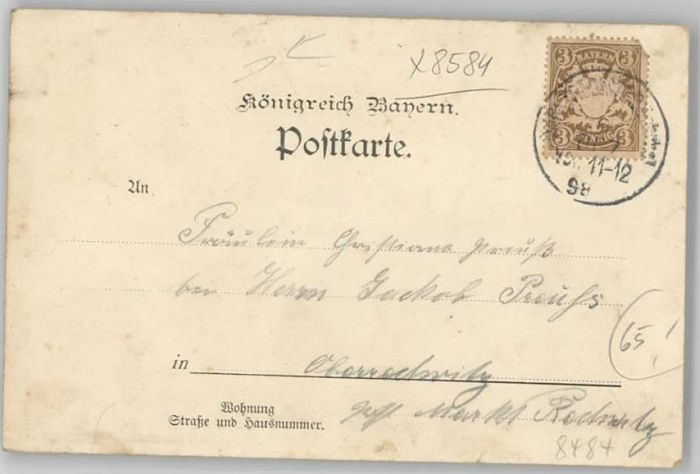 X8584
3 BAYERN 3
3 PFENNIG 3
11-12
98
Königreich Bayern.
Postkarte.
An
Fräulein Christiane Preuß
bei Herrn Jackob Preuhs
in Oberredwitz
Wohnung
Straße und Hausnummer.
Post Markt Redwitz
65,!
8484